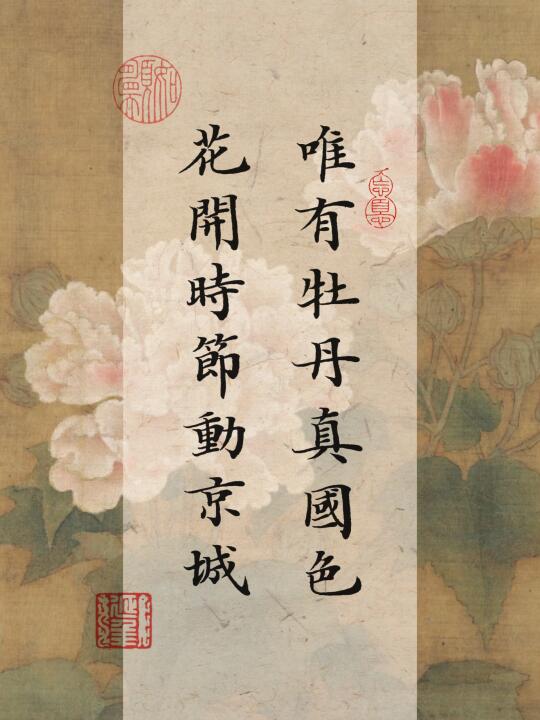 唯有牡丹真國色
花開時節動京城